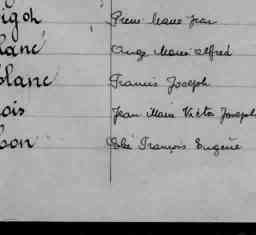 igoh Pierre Marie Jean
lanc Ange Marie Alfred
blanc Francis Joseph
ois Jean Marie Victor Joseph
bon Elie François Eugène